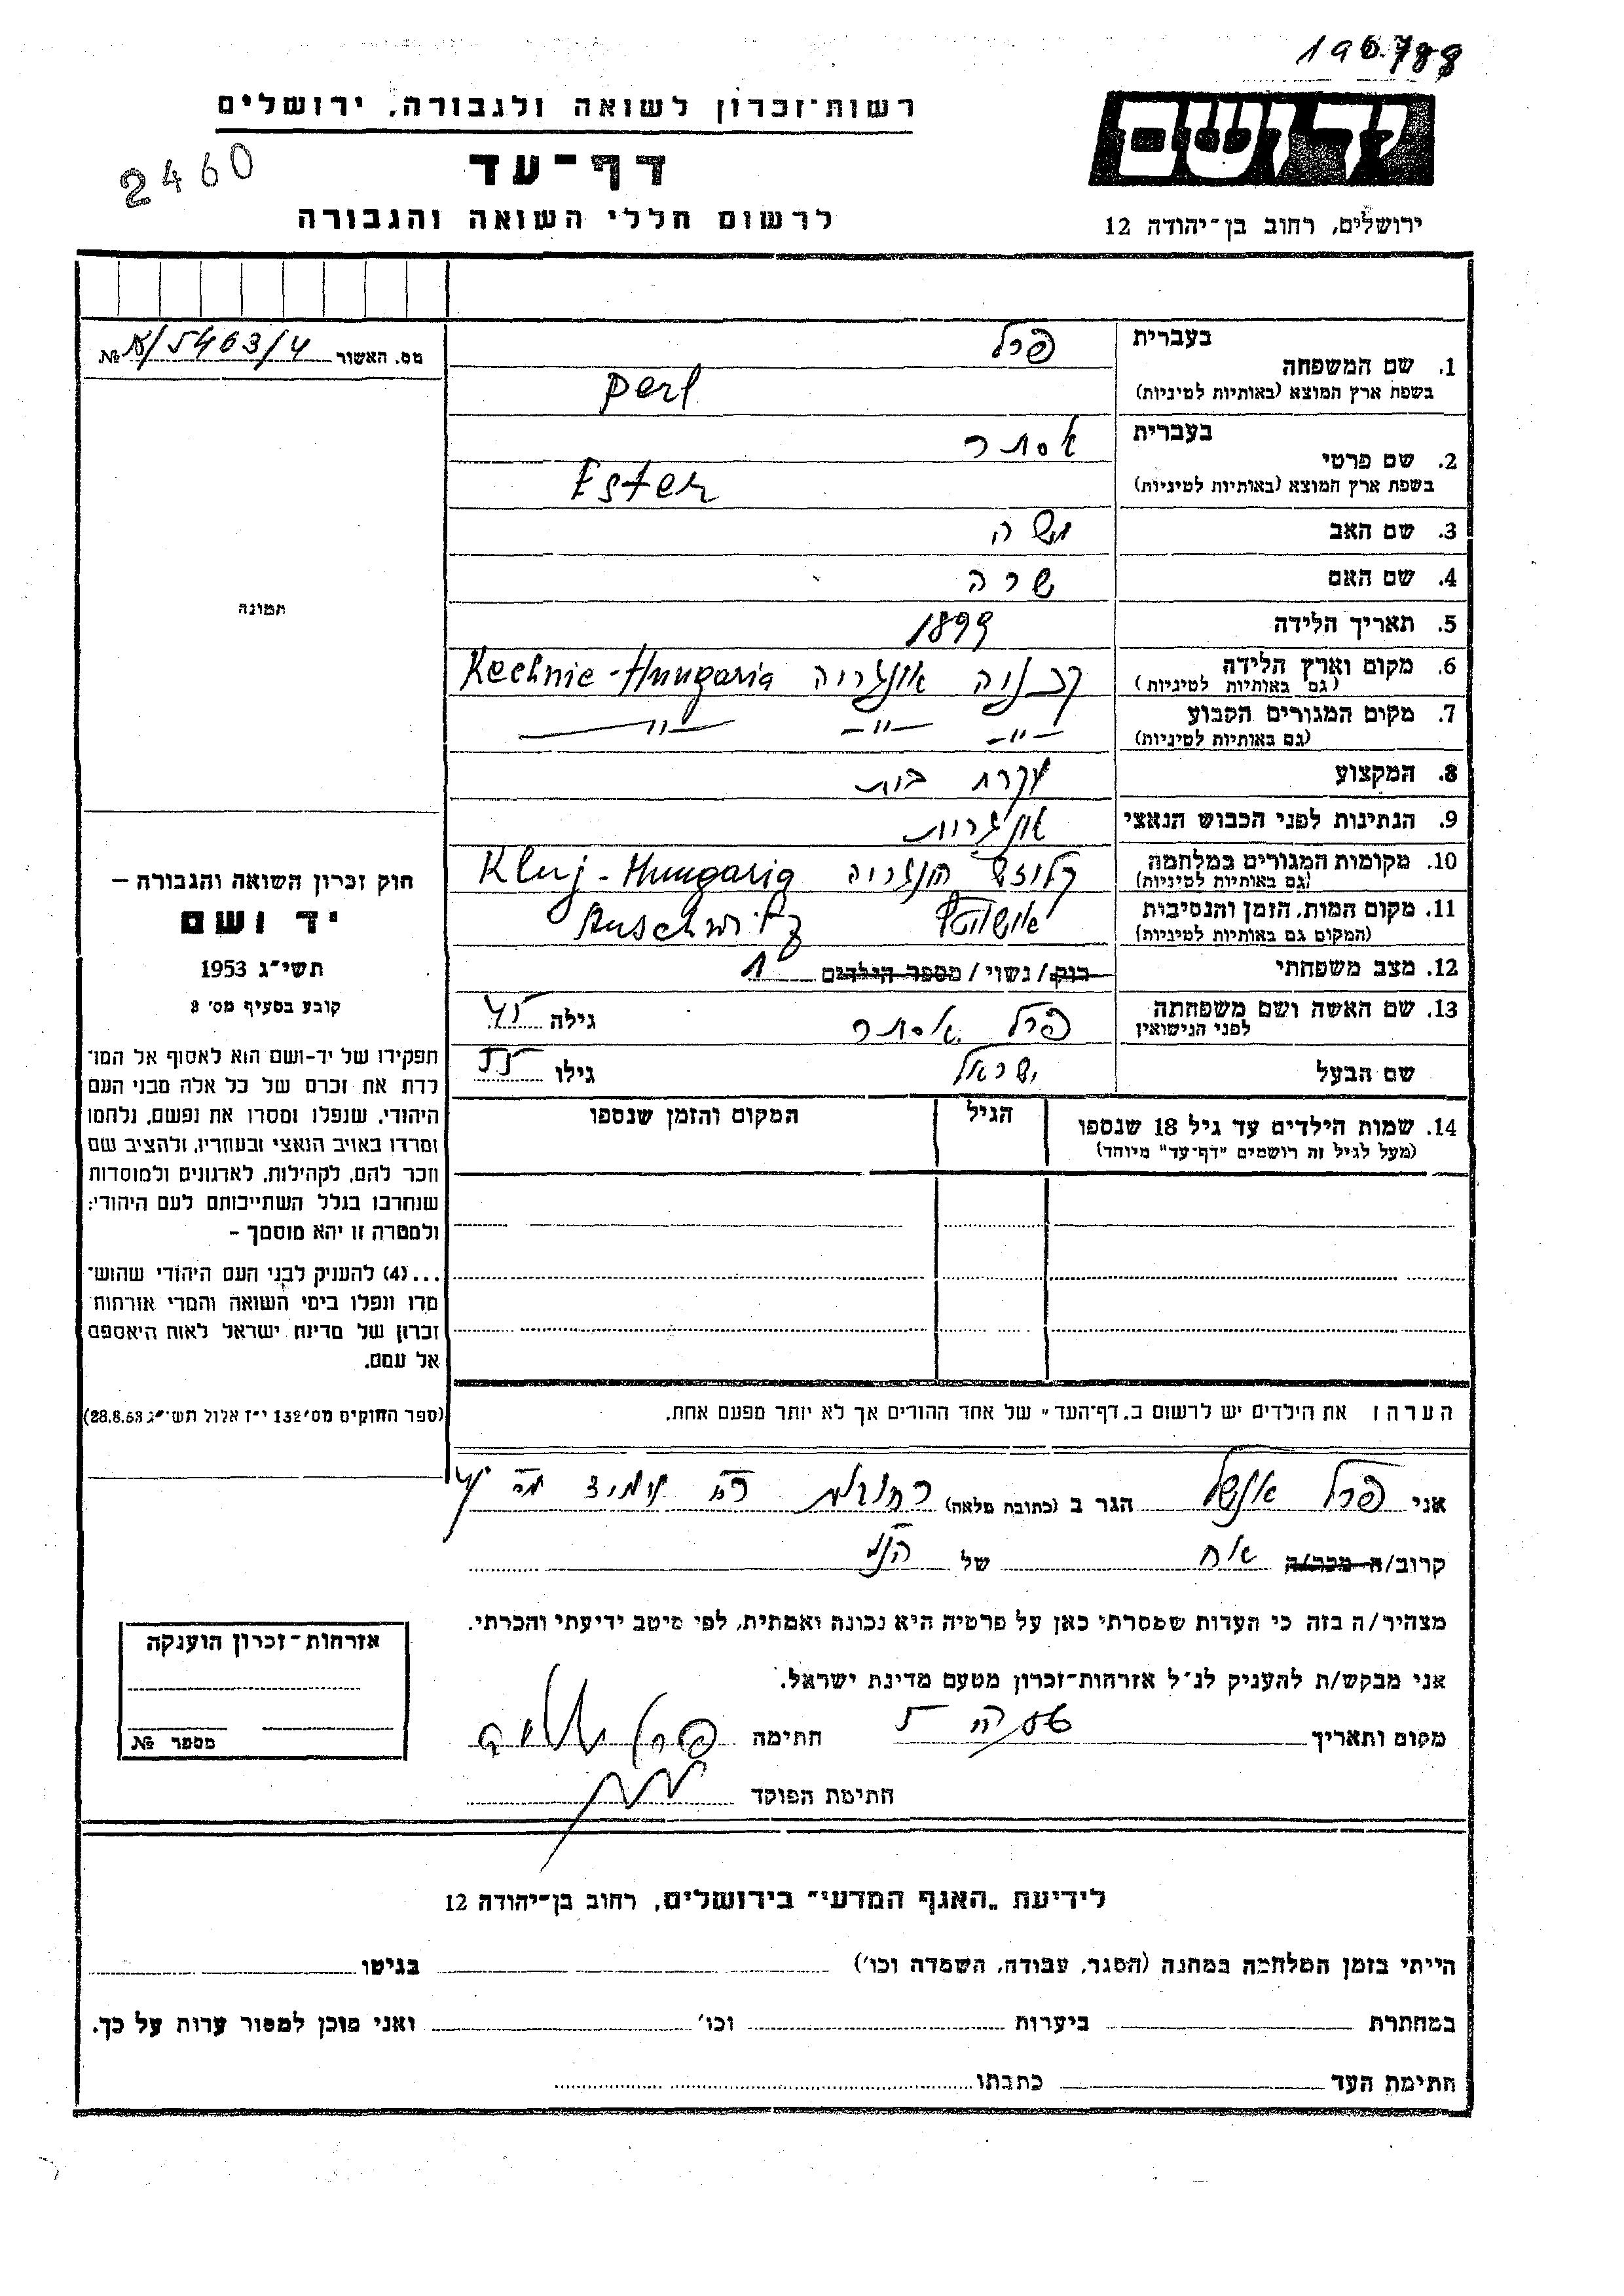 196788
רשות־זכרון לשואה ולגבורה, ירושלים
יד ושם
2460
דף־עד
לרשום חללי השואה והגבורה
ירושלים, רחוב בן־יהודה 12
מס. האשור № א/5463/4
תמונה
חוק זכרון השואה והגבורה —
יד ושם
תשי״ג 1953
קובע בסעיף מס׳ 2
תפקידו של יד-ושם הוא לאסוף אל המו־
לדת את זכרם של כל אלה מבני העם
היהודי, שנפלו ומסרו את נפשם, נלחמו
ומרדו באויב הנאצי ובעוזריו, ולהציב שם
וזכר להם, לקהילות, לארגונים ולמוסדות
שנחרבו בגלל השתייכותם לעם היהודי;
ולמטרה זו יהא מוסמך —
...(4) להעניק לבני העם היהודי שהוש־
מדו ונפלו בימי השואה והמרי אזרחות
זכרון של מדינת ישראל לאות היאספם
אל עמם.
(ספר החוקים מס׳ 132 י״ז אלול תשי״ג 28.8.53)
בעברית פרל
1. שם המשפחה
בשפת ארץ המוצא (באותיות לטיניות) Perl
בעברית אסתר
2. שם פרטי
בשפת ארץ המוצא (באותיות לטיניות) Ester
3. שם האב משה
4. שם האם שרה
5. תאריך הלידה 1899
6. מקום וארץ הלידה קכניה אונגריה Kechnie - Hungaria
(גם באותיות לטיניות)
7. מקום המגורים הקבוע —״— —״— —״—
(גם באותיות לטיניות)
8. המקצוע עקרת בית
9. הנתינות לפני הכבוש הנאצי אונגרית
10. מקומות המגורים במלחמה קלוזש הונגריה Kluj - Hungaria
(גם באותיות לטיניות)
11. מקום המות, הזמן והנסיבות אושוויץ Auschwitz
(המקום גם באותיות לטיניות)
12. מצב משפחתי רווק/ נשוי / מספר הילדים 1
13. שם האשה ושם משפחתה פרל אסתר גילה 45
לפני הנישואין
שם הבעל ישראל גילו
14. שמות הילדים עד גיל 18 שנספו הגיל המקום והזמן שנספו
(מעל לגיל זה רושמים ״דף־עד״ מיוחד)
הערה: את הילדים יש לרשום ב„דף־העד״ של אחד ההורים אך לא יותר מפעם אחת.
אני פרל אנשל הגר ב (כתובת מלאה) רחובות
קרוב/ה מכר/ה אח של הנ״ל
מצהיר/ה בזה כי העדות שמסרתי כאן על פרטיה היא נכונה ואמתית, לפי מיטב ידיעתי והכרתי.
אני מבקש/ת להעניק לנ״ל אזרחות־זכרון מטעם מדינת ישראל.
מקום ותאריך חתימה
חתימת הפוקד
אזרחות־זכרון הוענקה
מספר №
לידיעת „האגף המדעי״ בירושלים, רחוב בן־יהודה 12
הייתי בזמן המלחמה במחנה (הסגר, עבודה, השמדה וכו׳) בגיטו
במחתרת ביערות וכו׳ ואני מוכן למסור עדות על כך.
חתימת העד כתבתו